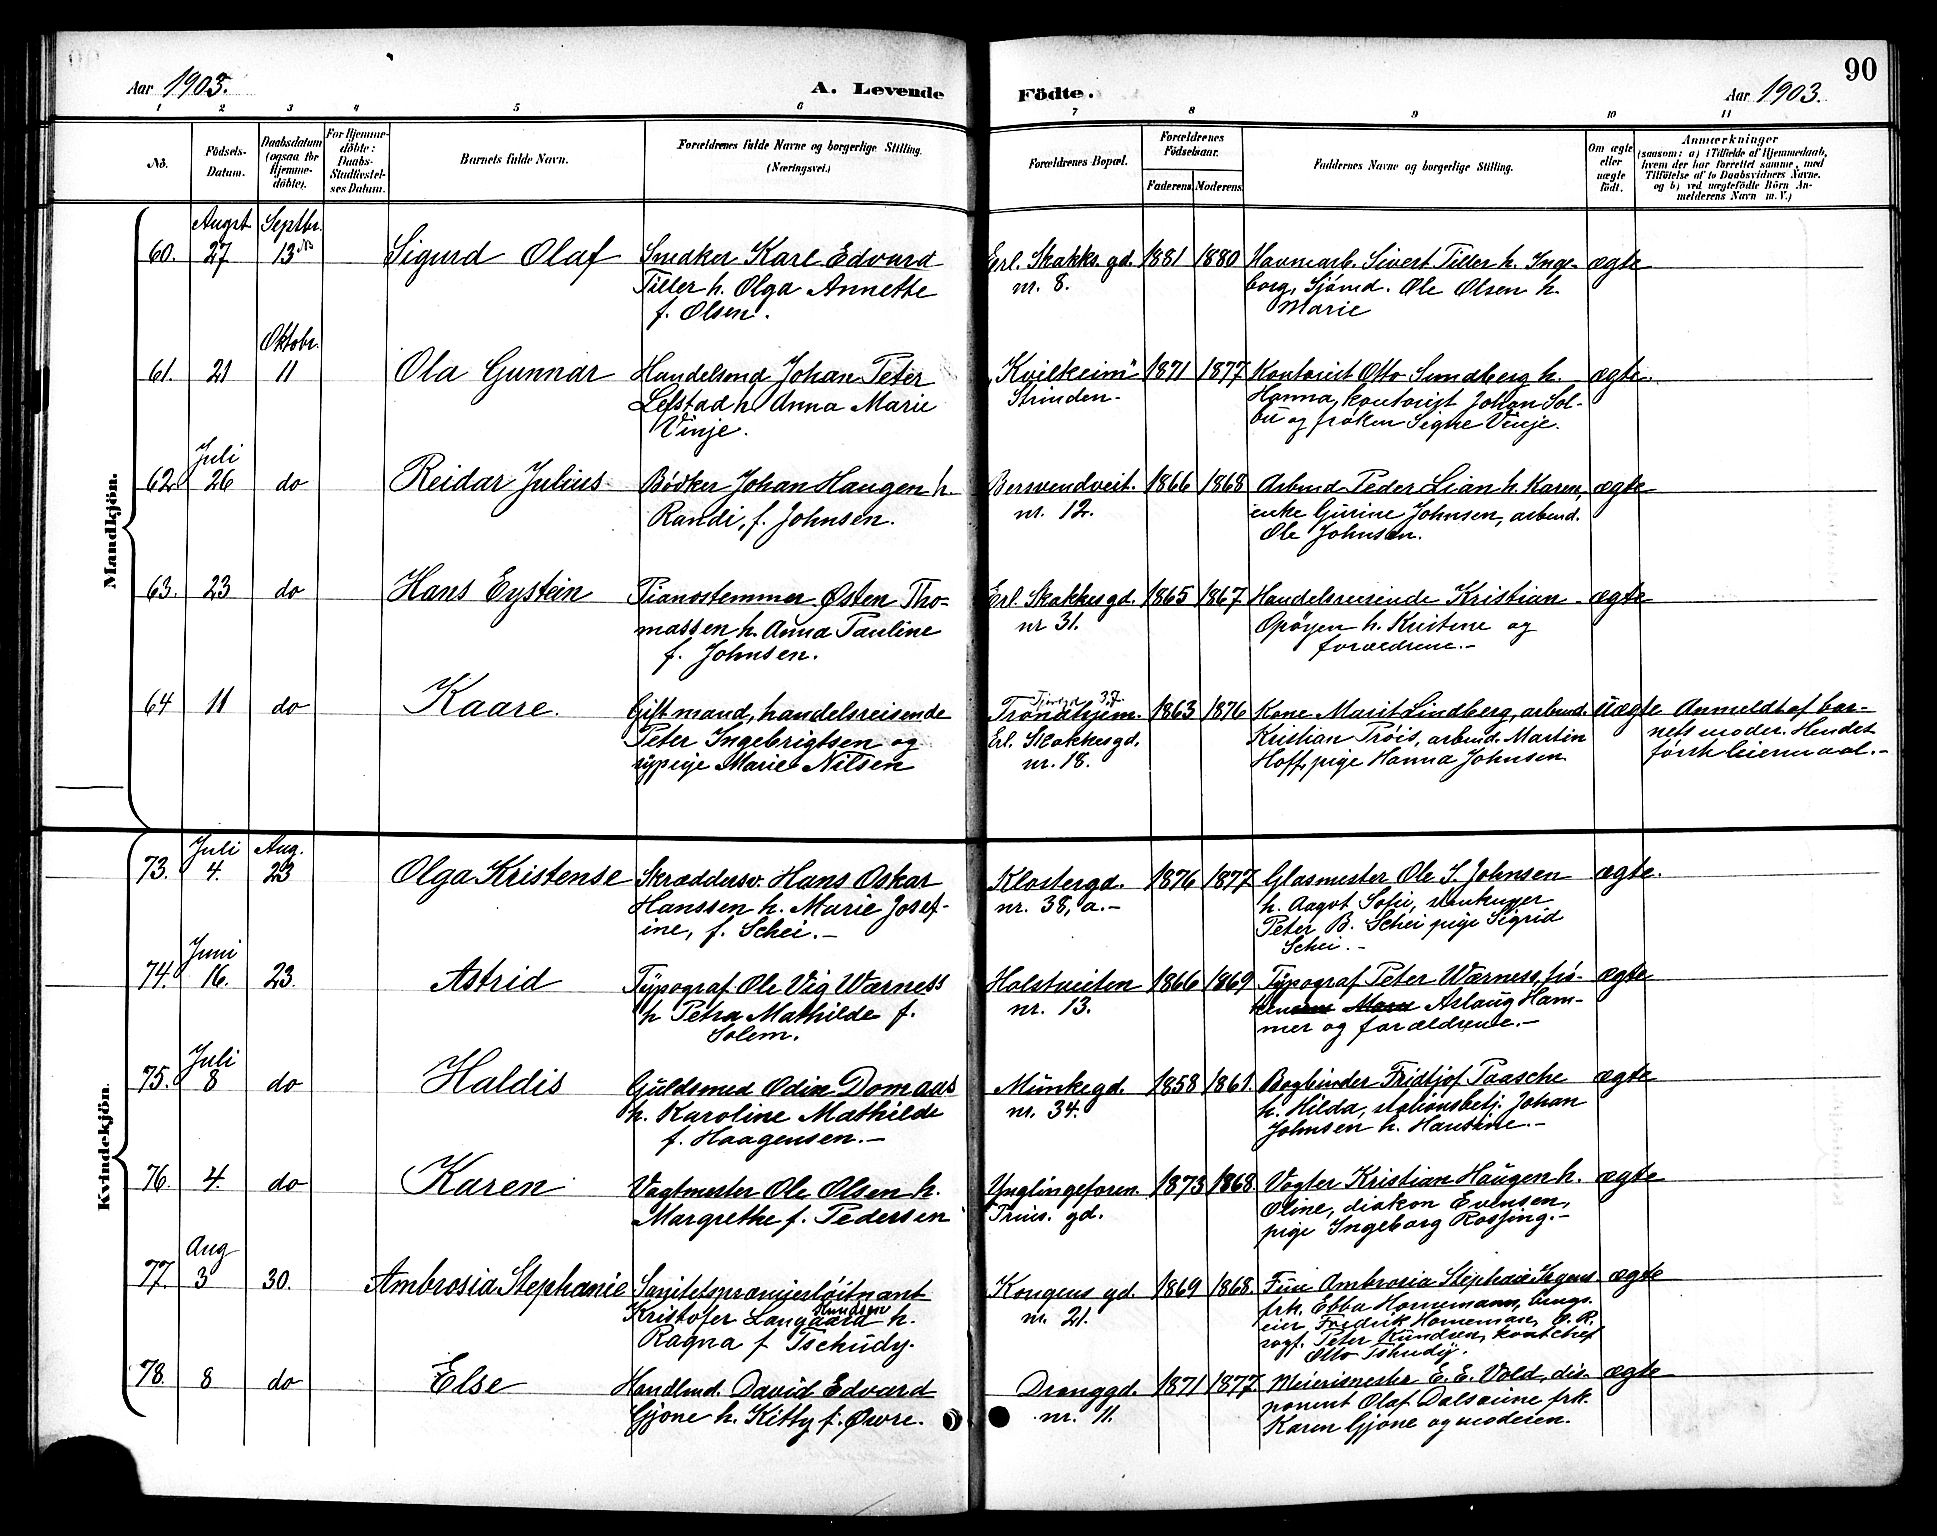 Aar 1903.
A. Levende
Födte.
Aar 1903.
90
1 2 3 4 5 6 7 8 9 10 11
No.
Födsels-
Datum.
Daabsdatum
(ogsaa for
Hjemme-
döbte).
For Hjemme-
döbte:
Daabs-
Stadfæstel-
ses Datum.
Barnets fulde Navn.
Forældrenes fulde Navne og borgerlige Stilling.
(Næringsvei.)
Forældrenes Bopæl.
Forældrenes
Födselsaar.
Faderens. Moderens.
Faddernes Navne og borgerlige Stilling.
Om ægte
eller
uægte
født.
Anmærkninger
(saasom: a) i Tilfælde af Hjemmedaab,
hvem der har forrettet samme, med
Tilföielse af to Daabsvidners Navne,
og b) ved uægtefödte Börn An-
melderens Navn m. V.)
Mandkjön.
Augst Septbr.
60. 27 13 Sigurd Olaf Snedker Karl Edvard Erl. Skakks. gd. 1881 1880 Havnearb. Sivert Tiller h. Inge- ægte
Tiller h. Olga Annette nr. 8. borg, Sjömd. Ole Olsen h.
f. Olsen. Marie
Oktobr.
61. 21 11 Ola Gunnar Handelsmd Johan Peter „Kvilheim" 1871 1877 Kontorist Otto Sundberg h. ægte.
Lefstad h. Anna Marie Strinden- Hanna, kontorist Johan Sol-
Vinje. bu og frøken Signe Vinje.
Juli
62 26 do Reidar Julius Bödker Johan Haugen h. Bersvendveit. 1866 1868 Arbmd Peder Lian h. Karen, ægte
Randi, f. Johnsen. nr. 12. enke Gurine Johnsen, arbmd.
Ole Johnsen.
63. 23 do Hans Eystein Pianostemmer Østen Tho- Erl. Skakkesgd. 1865 1867 Handelsreisende Kristian ægte
massen h. Anna Pauline nr 31. Opøyen h. Kristine og
f. Johnsen. forældrene.-
64 11 do Kaare. Gift mand, handelsreisende Trondhjem. 37. 1863 1876 Kone Marit Lindberg, arbmd. uægte Anmeldt af bar-
Peter Ingebrigtsen og Erl. Skakkesgd. Kristian Trøis, arbmd. Martin nets moder. Hendes
sypige Marie Nilsen nr. 18. Hoff, pige Hanna Johnsen første leiermaal.-
Kvindekjön.
Juli Aug.
73. 4. 23 Olga Kristense Skræddersv. Hans Oskar Klostergd. 1876 1877 Glasmester Ole S. Johnsen ægte.
Hanssen h. Marie Josef- nr. 38, a.- h. Aagot Sofie, stenhuger
ine, f. Schei.- Peter B. Schei pige Sigrid
Schei.-
Juni
74. 16. 23. Astrid Typograf Ole Vig Wærness Holstveiten 1866 1869 Typograf Peter Wærness, frø- ægte
h Petra Mathilde f. nr. 13. Aslaug Ham-
Solem. mer og forældrene.-
Juli
75. 8 do Haldis Guldsmed Odin Domaas Munkegd. 1858 1861. Bogbinder Fridtjof Paasche ægte
h. Karoline Mathilde nr. 34. h. Hilda, stationsbetj. Johan
f. Haagensen.- Johnsen h. Hansine.-
76. 4. do Karen Vagtmester Ole Olsen h. Ynglingeforen. 1873 1868. Vogter Kristian Haugen h. ægte
Margrethe f. Pedersen Prins. gd. Oline, diakon Evensen,
pige Ingeborg Rossing.-
Aug
77. 3 30. Ambrosia Stephanie Sanitetspremierløitnant Kongens gd. 1869 1868. Frue Ambrosia Stephanie ægte
Kristofer Langaard Knudsen h. nr. 21. frk. Ebba Hornemann, brugs-
Ragna f Tschudy. eier Fredrik Horneman, O. R.
sagf. Peter Knudsen, kontchef
Otto Tshudy.
78. 8 do Else Handlmd. David Edvard Dronggd. 1871 1877. Meierimester E. E. Vold, dis- ægte
Gjöne h. Kitty f. Øwre. nr. 11. ponent Olaf Dalsaune frk.
Karen Gjöne og moderen.